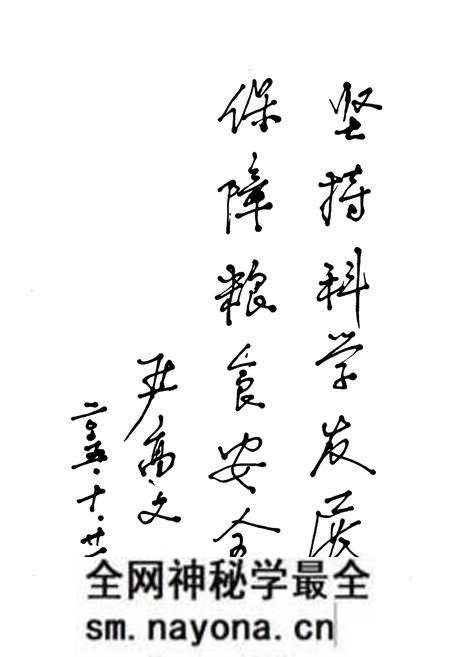 坚持科学发展
保障粮食安全
尹高文
二〇〇五.十.廿
全网神秘学最全
sm.nayona.cn